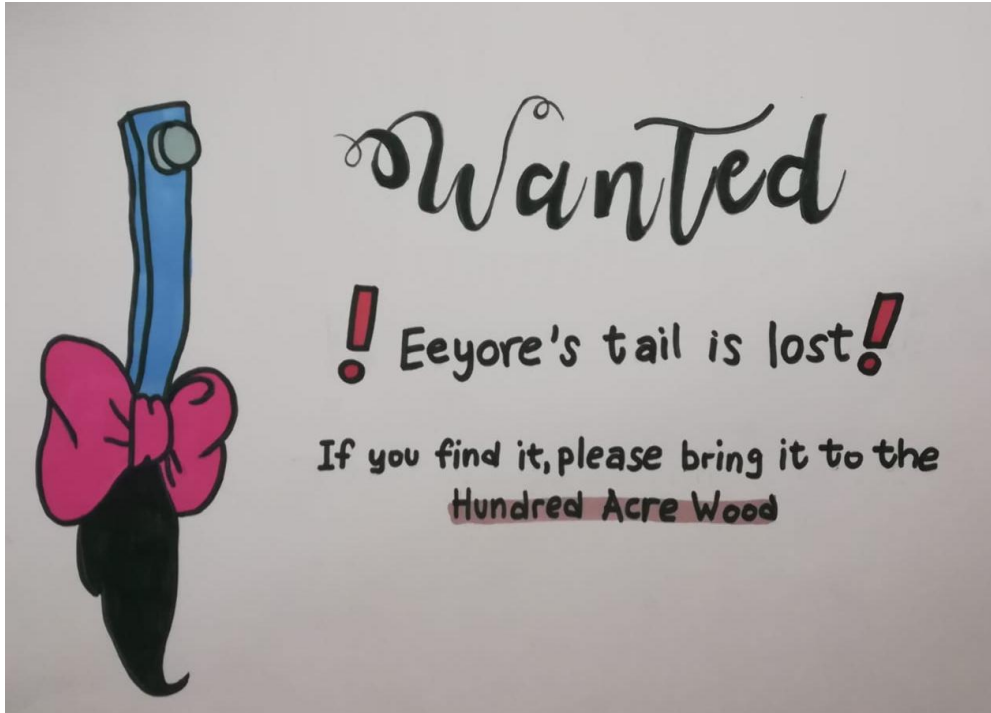 Wanted
! Eeyore's tail is lost!
If you find it, please bring it to the
Hundred Acre Wood